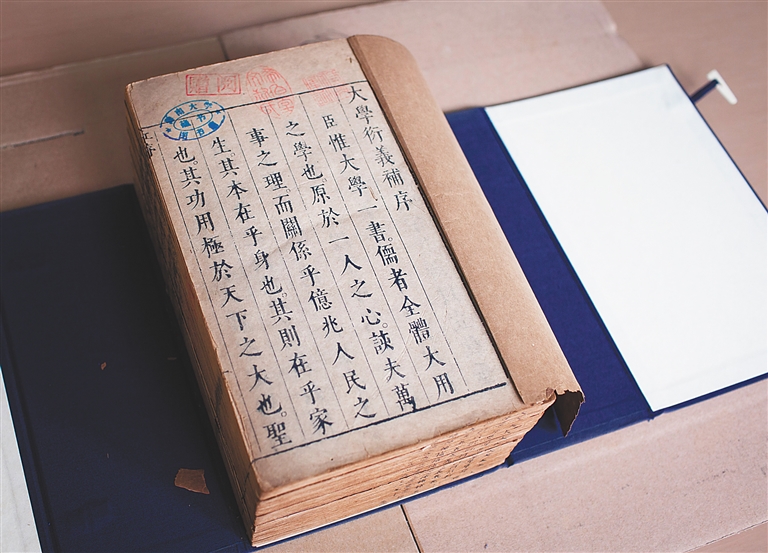 大學衍義補序
臣惟大學一書。儒者全體大用
之學也。原於一人之心。該夫萬
事之理。而關係乎億兆人民之
生。其本在乎身也。其則在乎家
也。其功用極於天下之大也。聖
南大学
藏书
图书馆